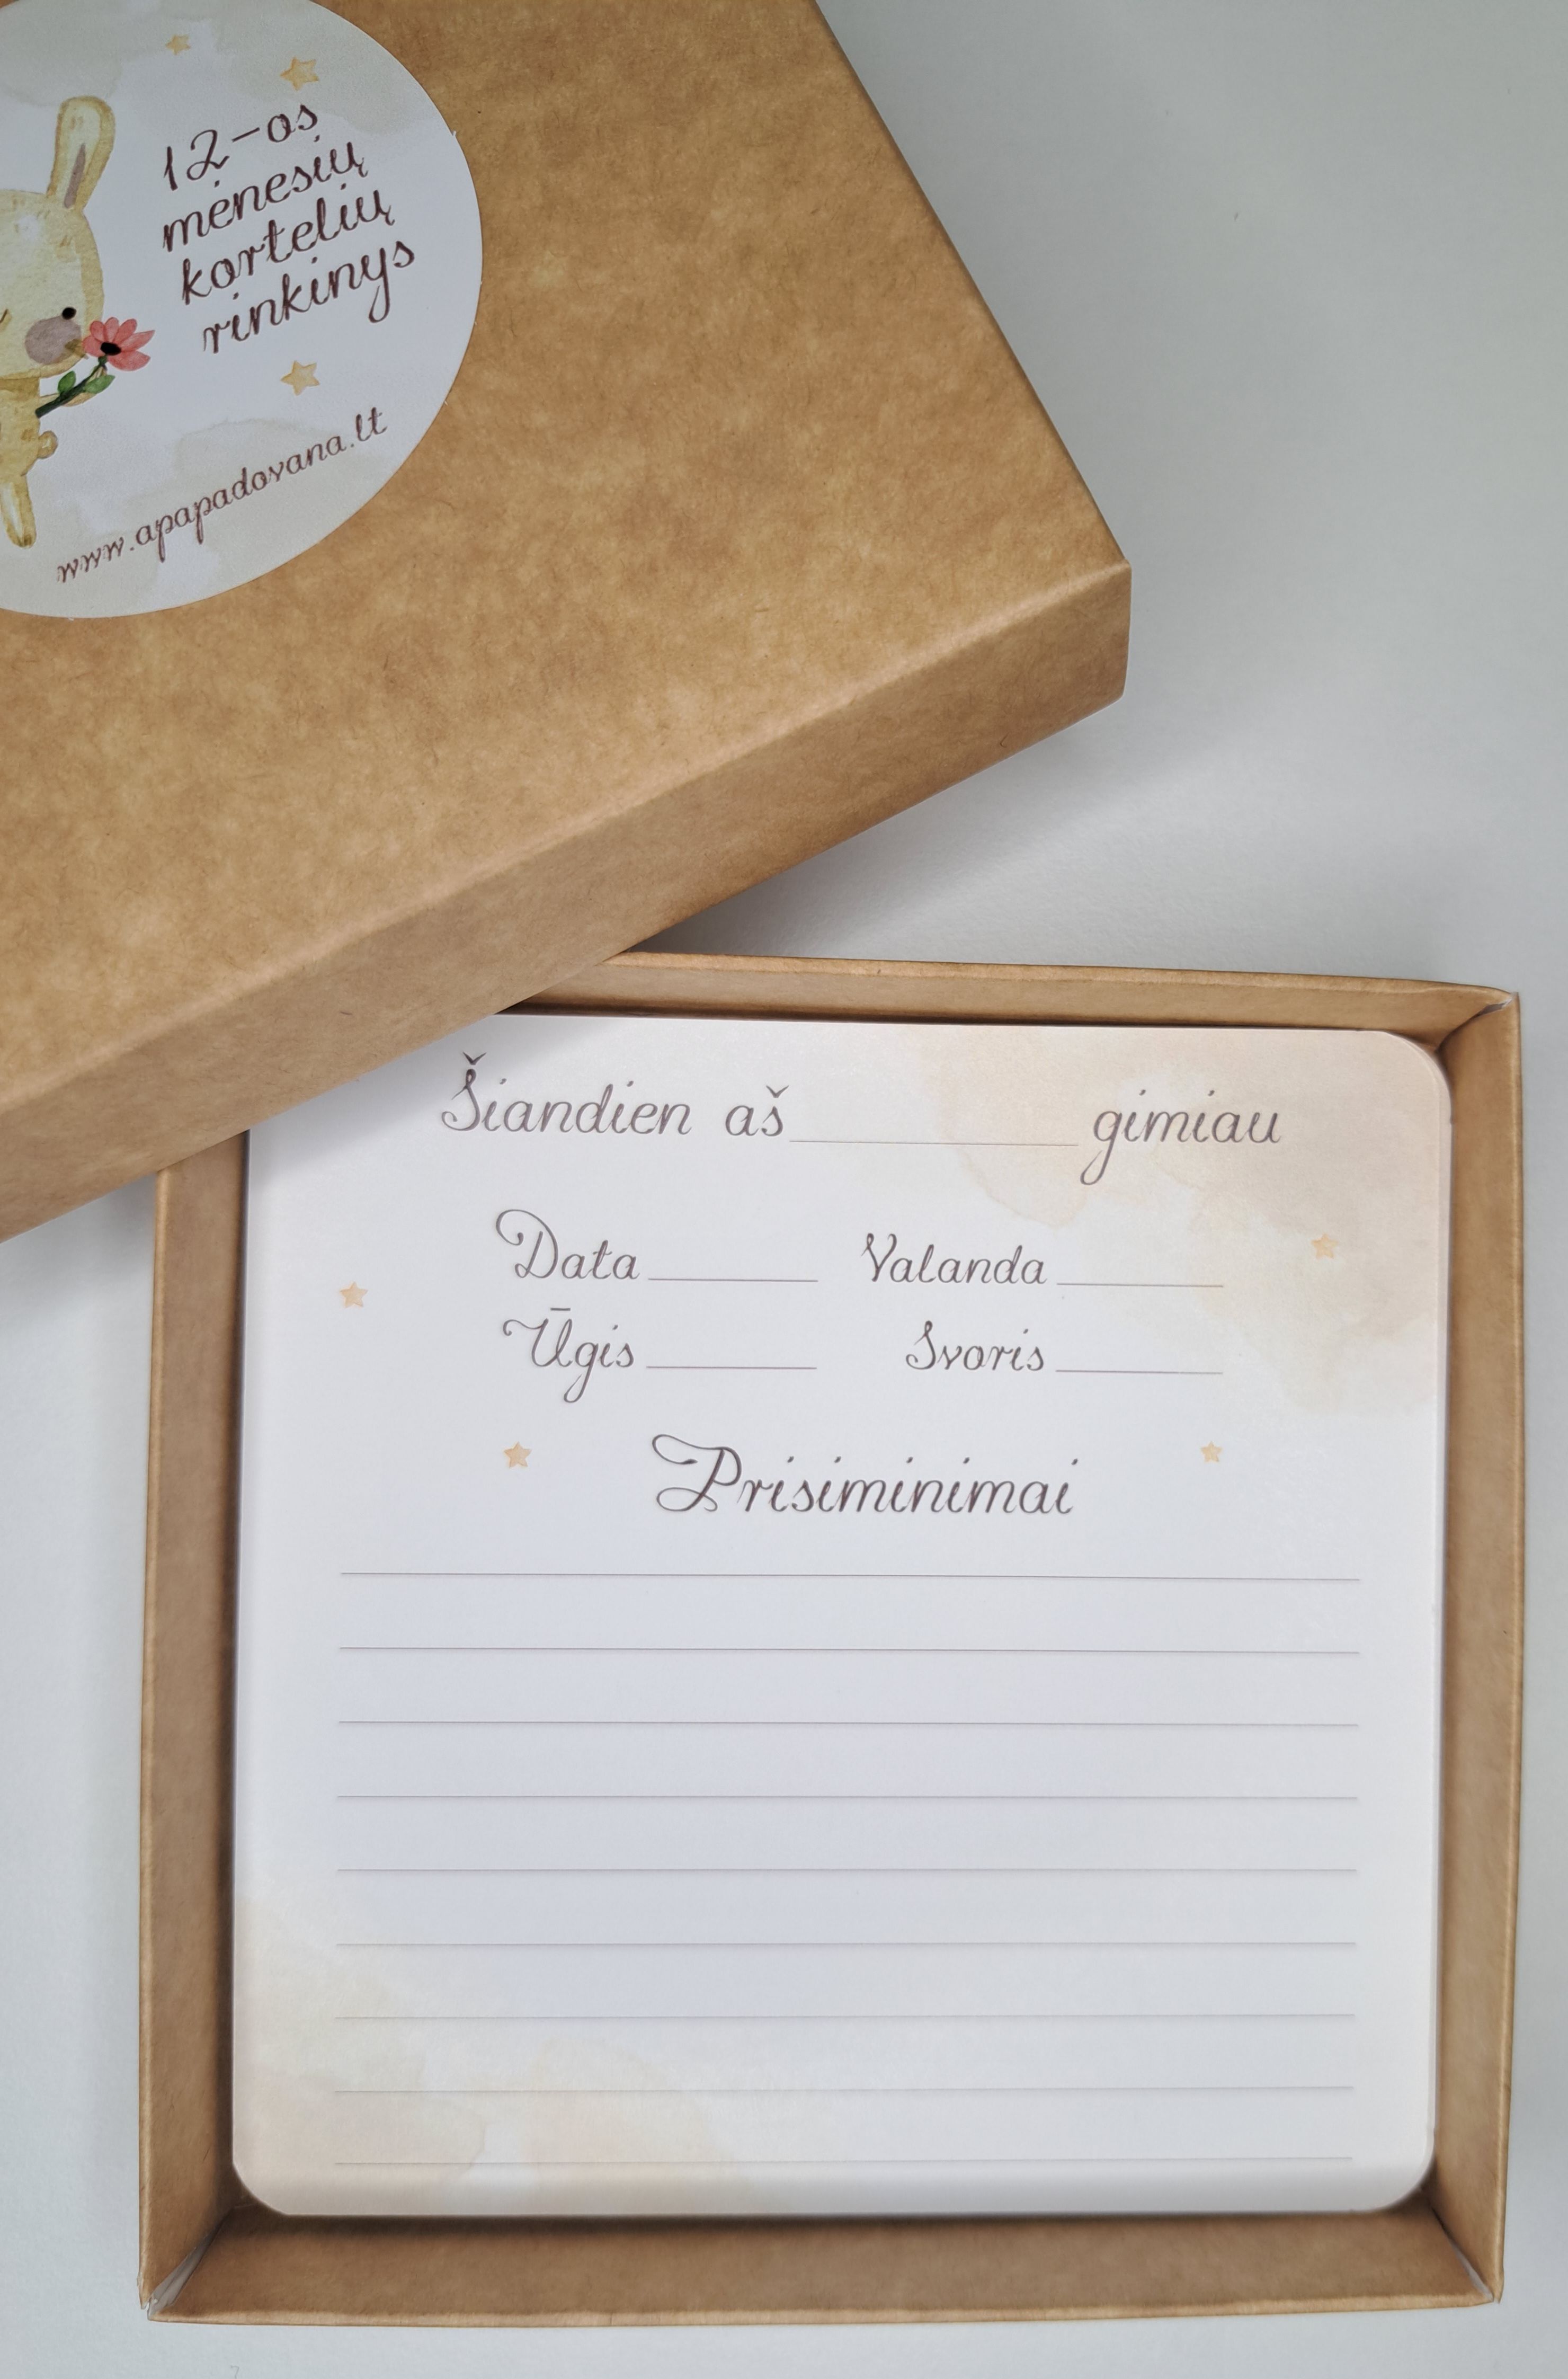 12-os
mėnesių
kortelių
rinkinys
www.apapadovana.lt
Šiandien aš__________gimiau
Data______ Valanda______
Ūgis______ Svoris______
Prisiminimai